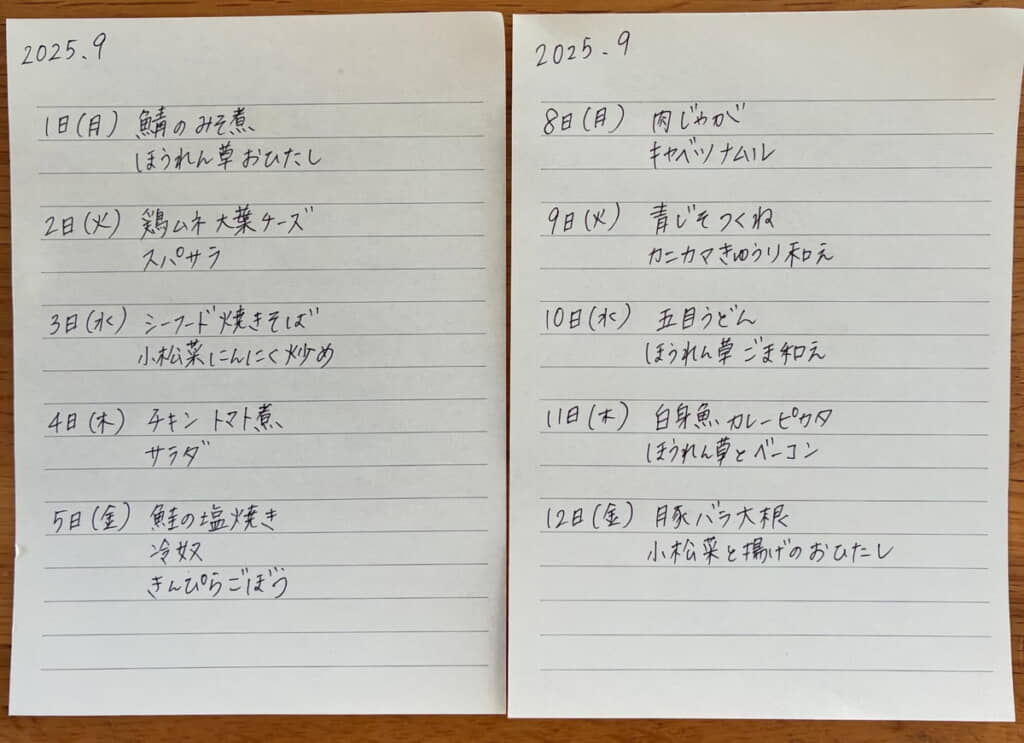 2025.9
1日(月) 鯖のみそ煮
ほうれん草おひたし
2日(火) 鶏ムネ大葉チーズ
スパサラ
3日(水) シーフード焼きそば
小松菜にんにく炒め
4日(木) チキントマト煮
サラダ
5日(金) 鮭の塩焼き
冷奴
きんぴらごぼう
2025.9
8日(月) 肉じゃが
キャベツナムル
9日(火) 青じそつくね
カニカマきゅうり和え
10日(水) 五目うどん
ほうれん草ごま和え
11日(木) 白身魚カレーピカタ
ほうれん草とベーコン
12日(金) 豚バラ大根
小松菜と揚げのおひたし